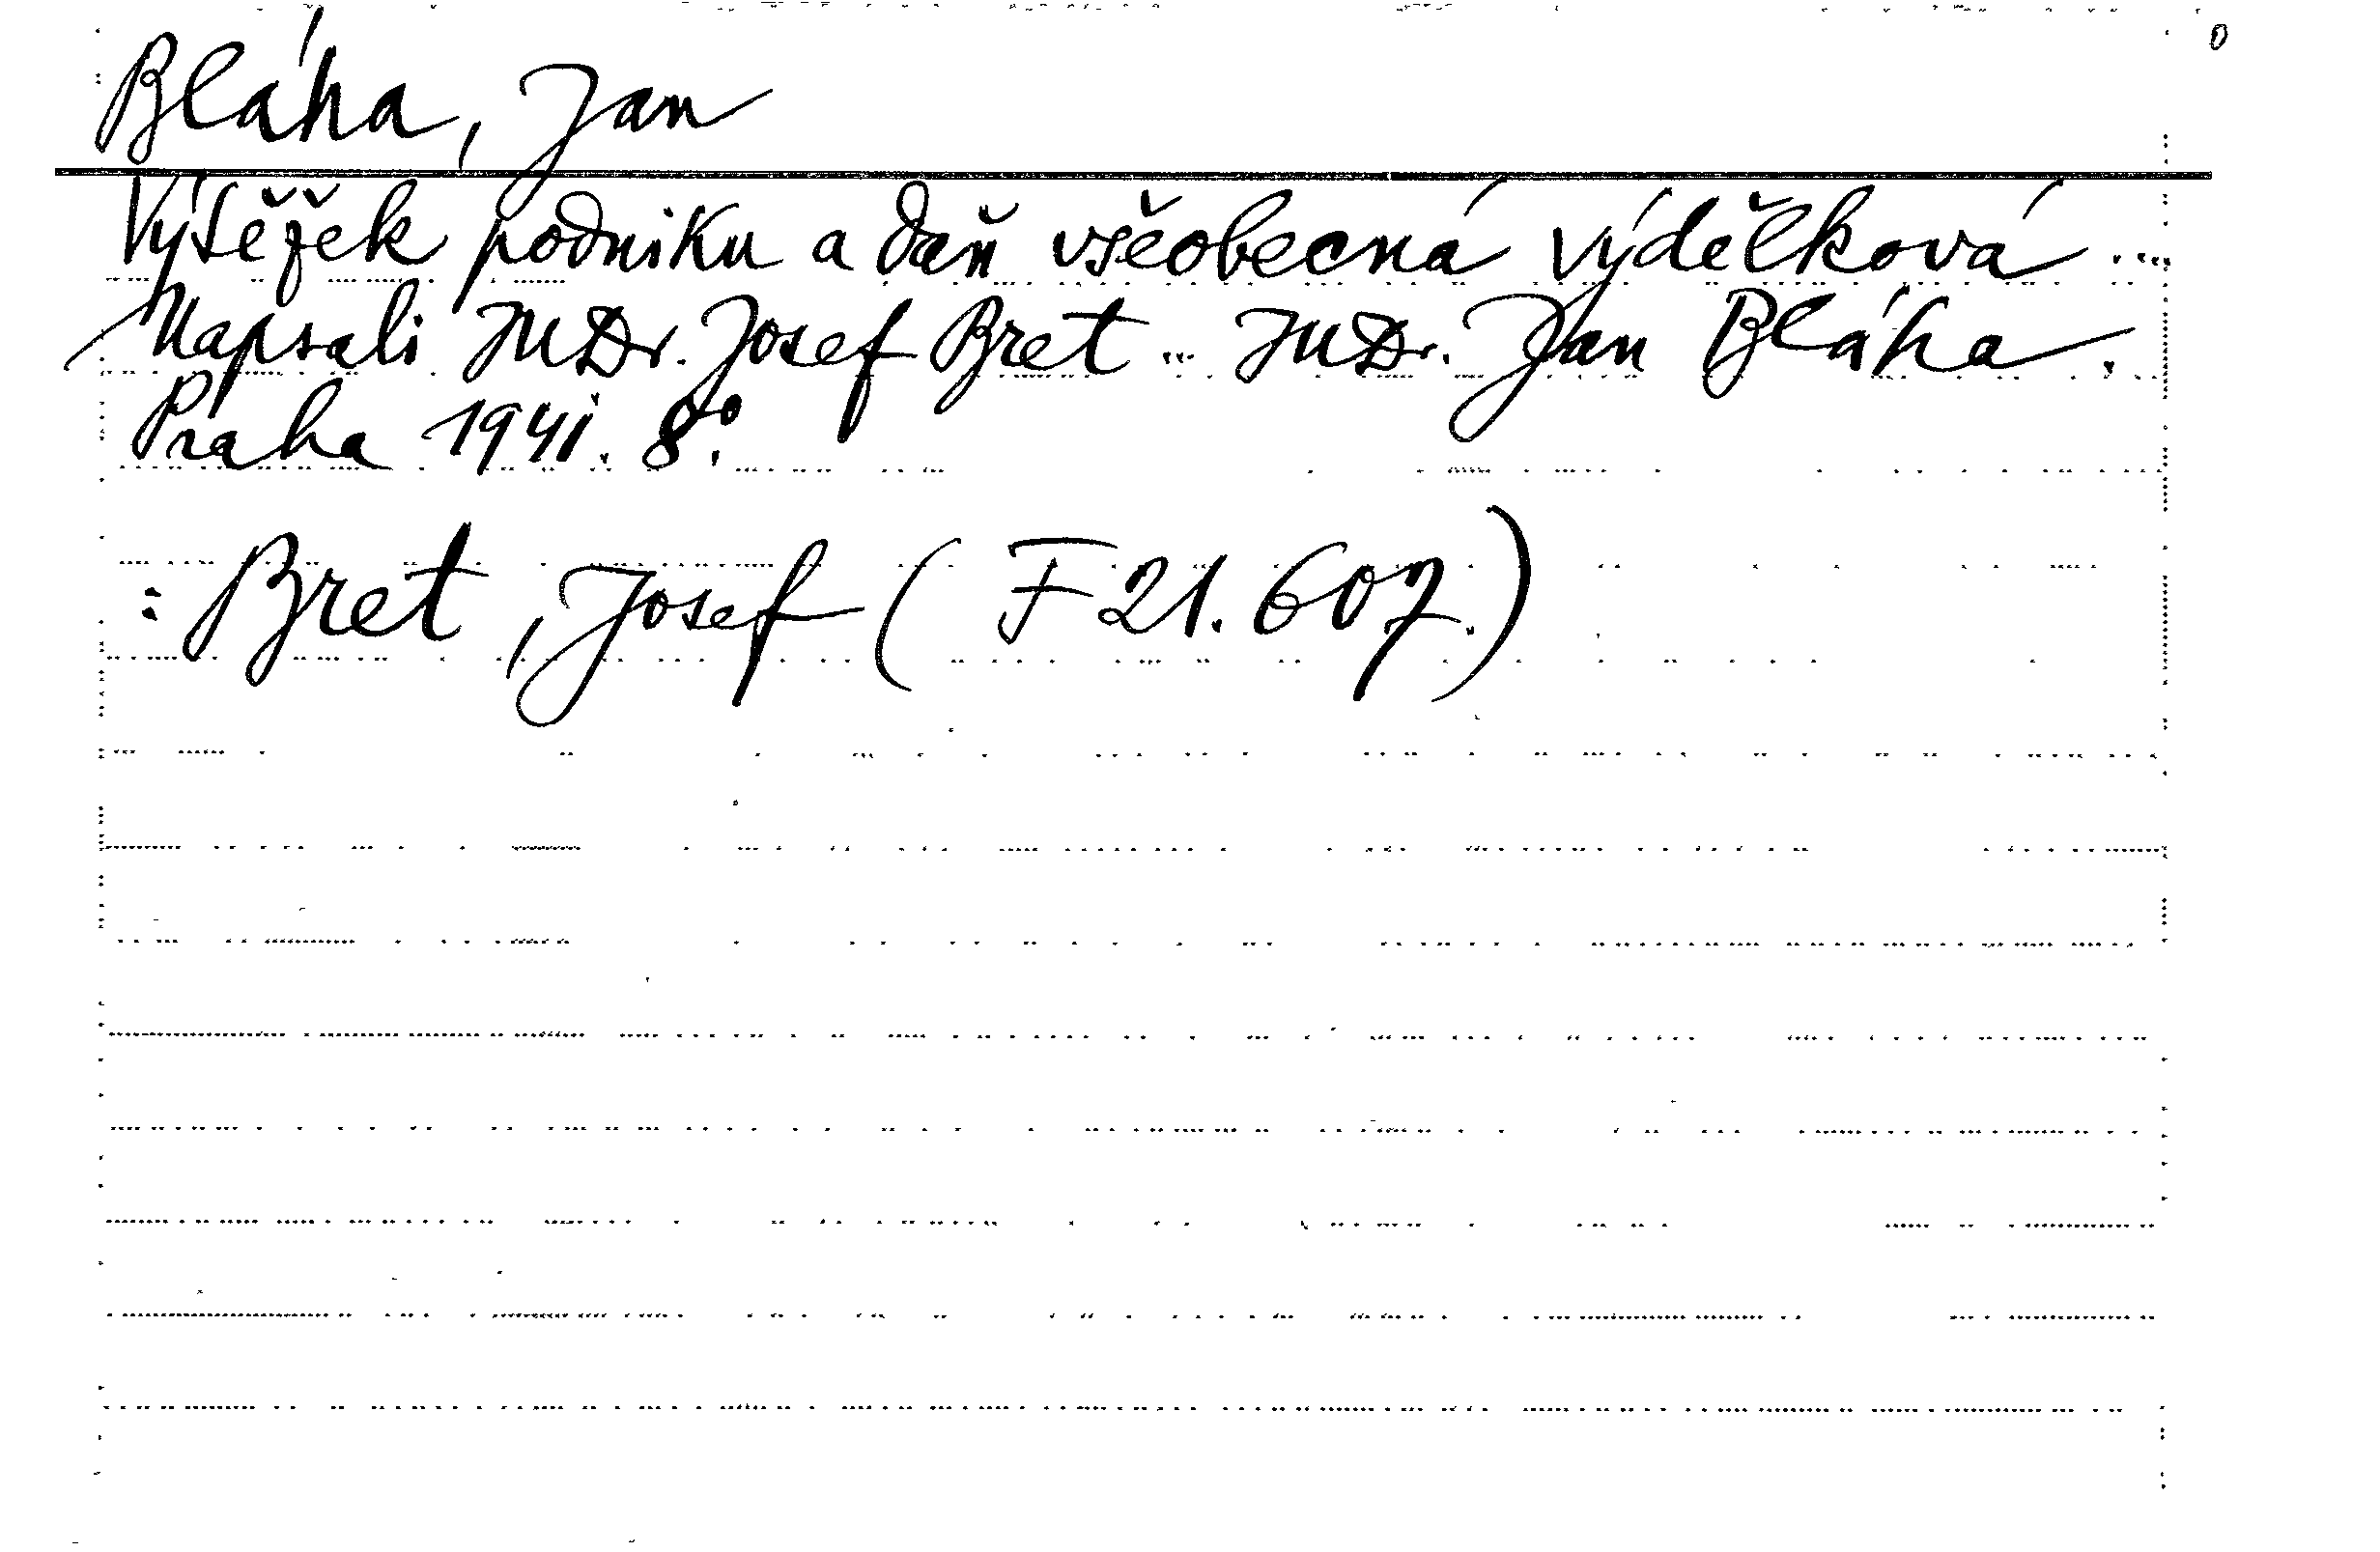 Bláha, Jan
Výtěžek podniku a daň všeobecná výdělková ...
Napsali JUDr. Josef Bret ... JUDr. Jan Bláha.
Praha 1941. 8°.
: Bret, Josef (F 21.607.)